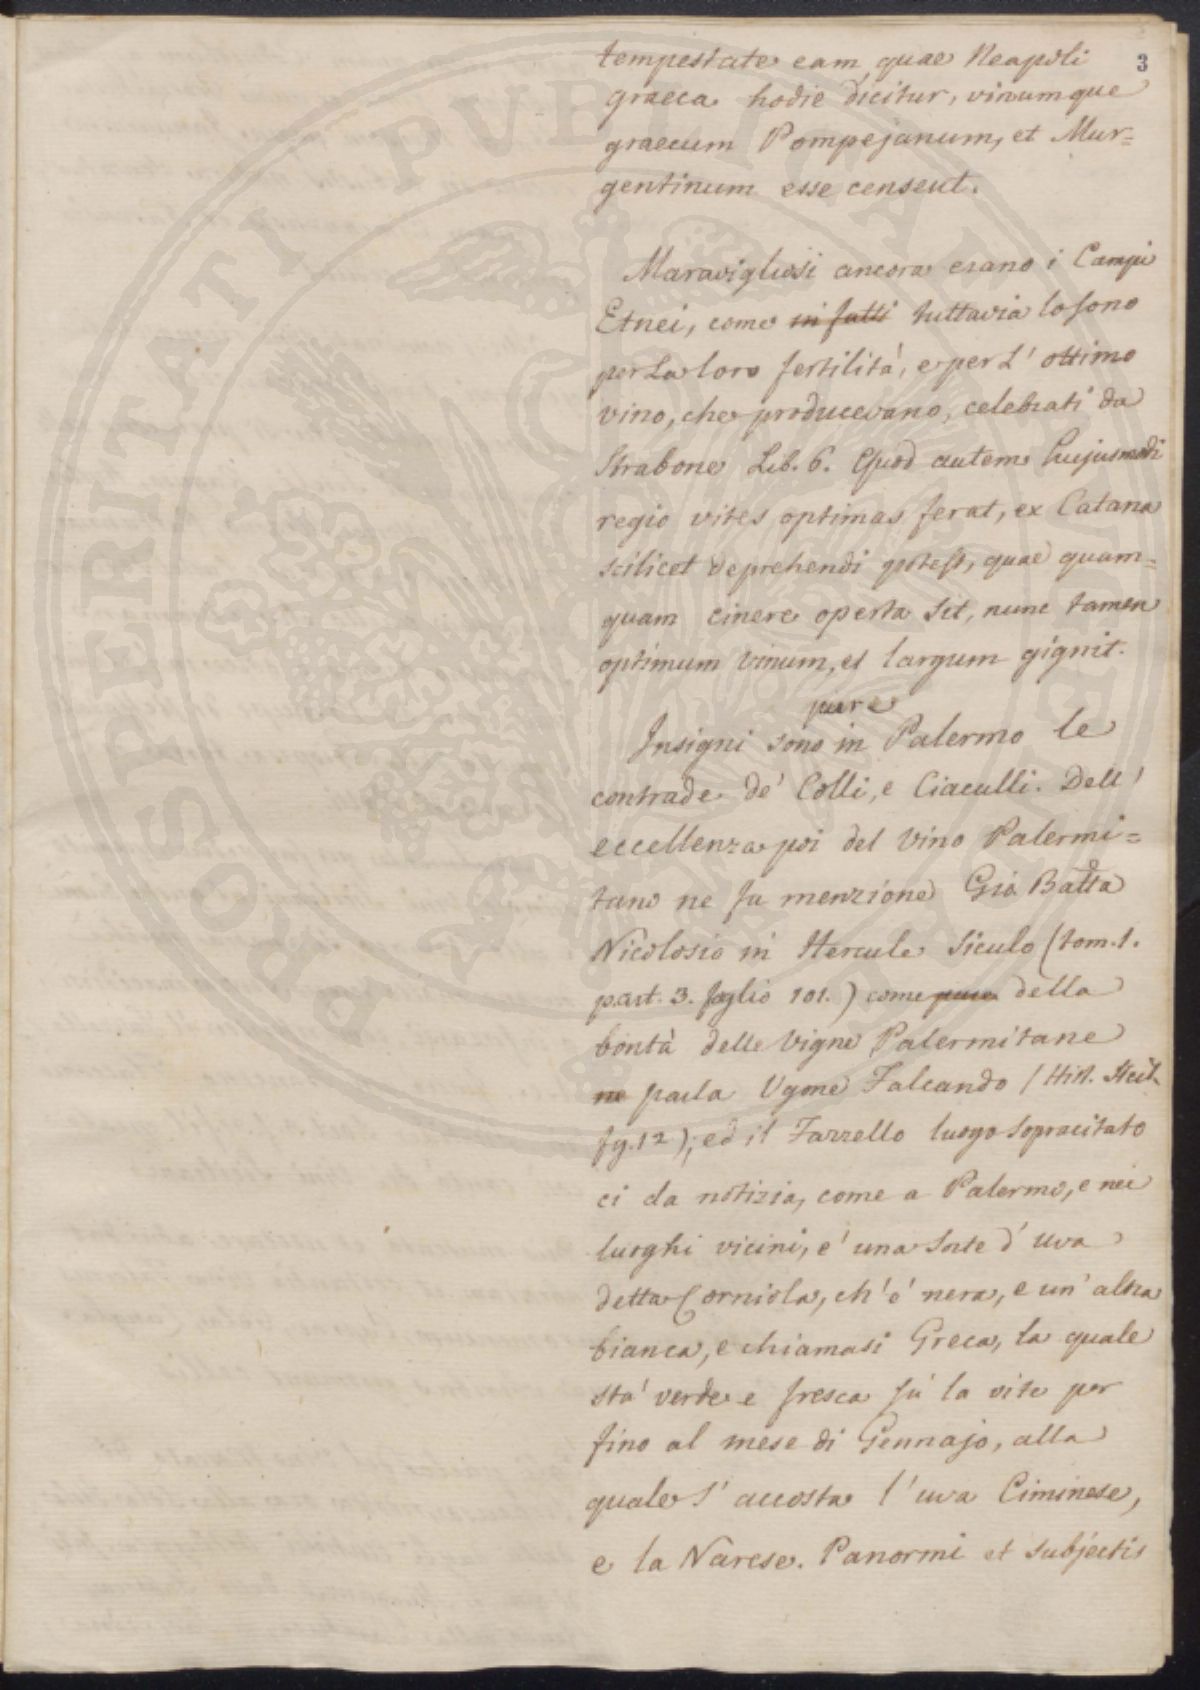 3
tempestate eam, quae Neapoli
graeca hodie dicitur, vinumque
graecum Pompejanum, et Mur=
gentinum esse censeut.
Maravigliosi ancora erano i Campi
Etnei, come in fatti tuttavia lo sono
per La loro fertilità, e per L' ottimo
vino, che producevano, celebrati da
Strabone Lib. 6. Quod autem hujusmodi
regio vites optimas ferat, ex Catana
scilicet deprehendi potest, quae quam=
quam cinere operta sit, nunc tamen
optimum vinum, et largum gignit.
pure
Insigni sono in Palermo le
contrade de' Colli, e Ciaculli. Dell'
eccellenza poi del Vino Palermi=
tano ne fa menzione Gio Batta
Nicolosio in Hercule Siculo (tom. 1.
part. 3. foglio 101.) come pure della
bontà delle Vigne Palermitane
ne parla Ugone Falcando (Hist. Sicil.
fg. 12); ed il Fazzello luogo sopracitato
ci da notizia, come a Palermo, e nei
luoghi vicini, e' una sorte d' uva
detta Corniola, ch' e' nera, e un' altra
bianca, e chiamasi Greca, la quale
sta' verde e fresca sù la vite per
fino al mese di Gennajo, alla
quale s' accosta l' uva Ciminese,
e la Narese. Panormi et subjectis
PROSPERITATI PUBLICAE